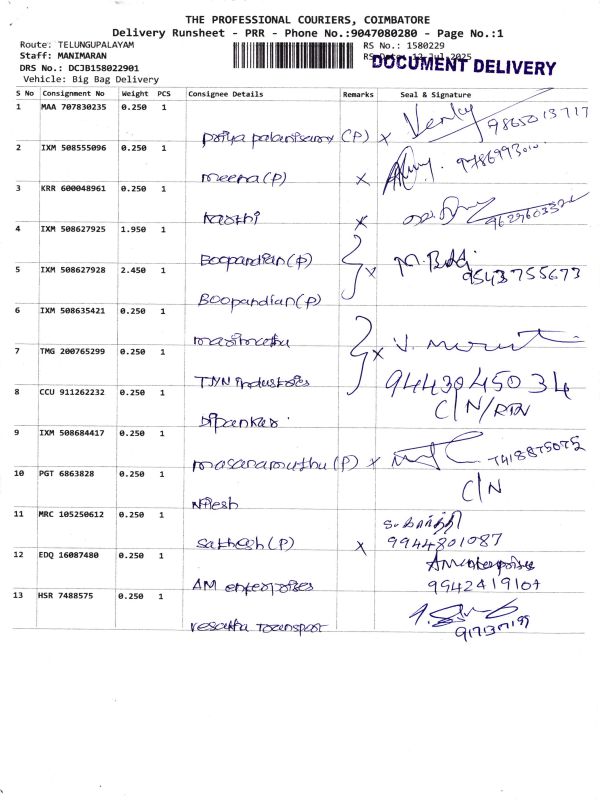 THE PROFESSIONAL COURIERS, COIMBATORE
Delivery Runsheet - PRR - Phone No.:9047080280 - Page No.:1
Route: TELUNGUPALAYAM
RS No.: 1580229
Staff: MANIMARAN
RS Date: 12 Jul 2025
DOCUMENT DELIVERY
DRS No.: DCJB158022901
Vehicle: Big Bag Delivery
S No Consignment No Weight PCS Consignee Details Remarks Seal & Signature
1 MAA 707830235 0.250 1
Priya palanisamy (P) x 9865013717
2 IXM 508555096 0.250 1
meena(P) x
3 KRR 600048961 0.250 1
Karthi x
4 IXM 508627925 1.950 1
Boopandian(P)
x
5 IXM 508627928 2.450 1
9543755673
Boopandian(P)
6 IXM 508635421 0.250 1
marimuthu
7 TMG 200765299 0.250 1
x
TJYN Industries 9443045034
8 CCU 911262232 0.250 1
C/N/RTN
Dipankar
9 IXM 508684417 0.250 1
masanamuthu (P) x 7418875075
10 PGT 6863828 0.250 1
C/N
Nilesh
11 MRC 105250612 0.250 1
sathesh(P) x 9944801087
12 EDQ 16087480 0.250 1
AM enterprises
AM enterprises 9942419107
13 HSR 7488575 0.250 1
Transport